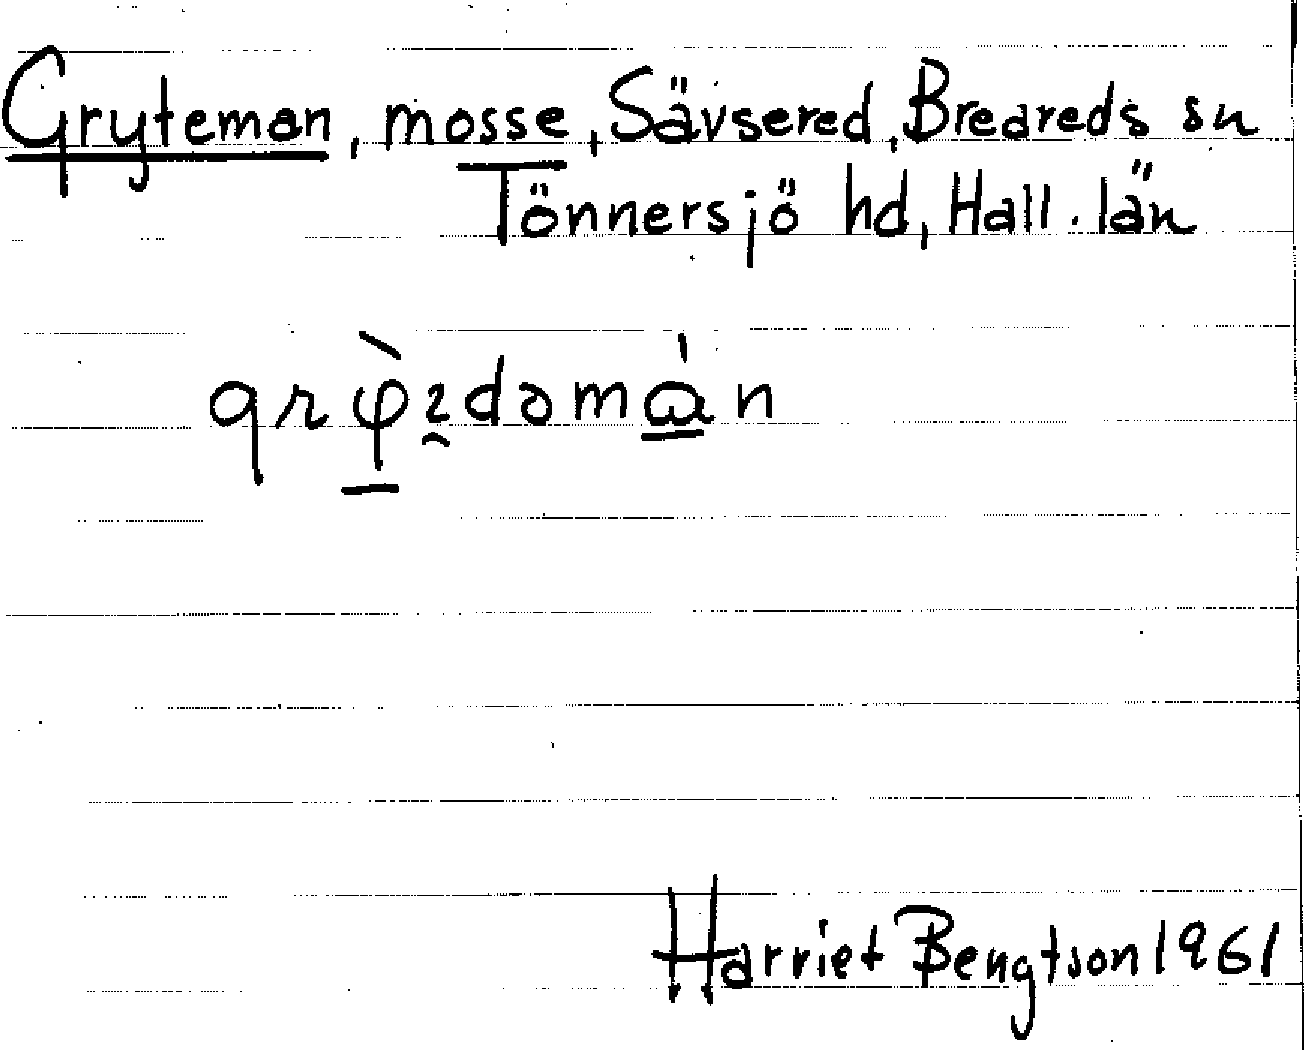 Gryteman, mosse, Sävsered, Breareds sn
Tönnersjö hd, Hall. län
Harriet Bengtson 1961